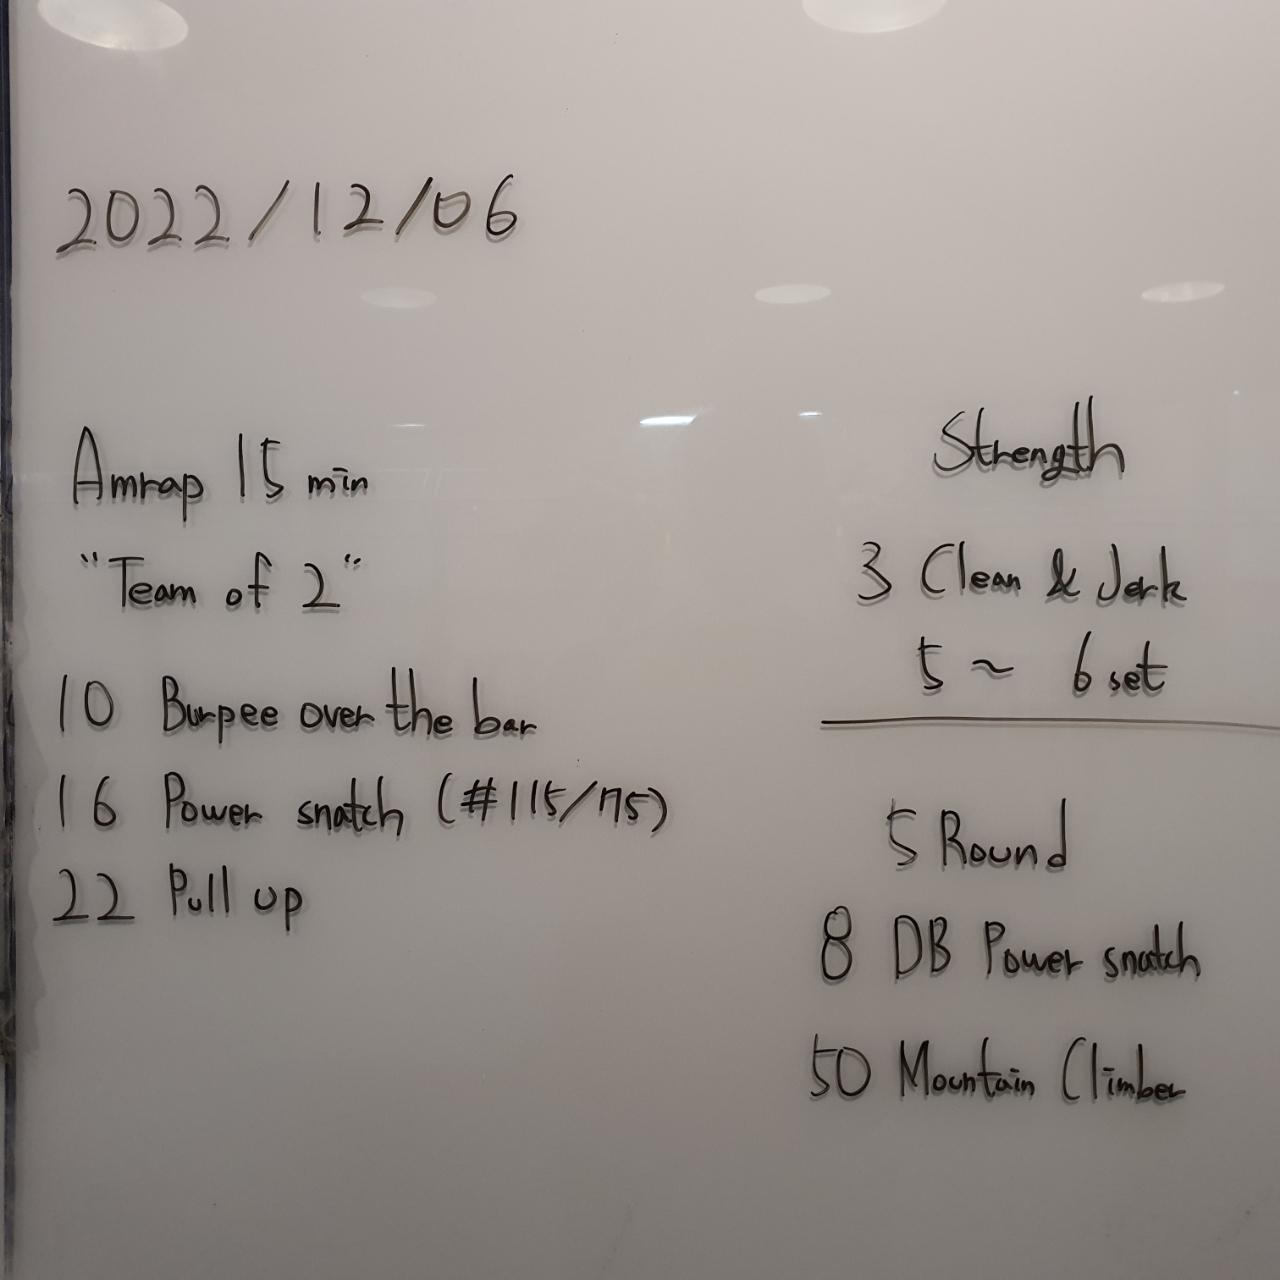 2022/12/06
Amrap 15 min
"Team of 2"
10 Burpee over the bar
16 Power snatch (#115/75)
22 Pull up
Strength
3 Clean & Jerk
5 ~ 6 set
5 Round
8 DB Power snatch
50 Mountain Climber